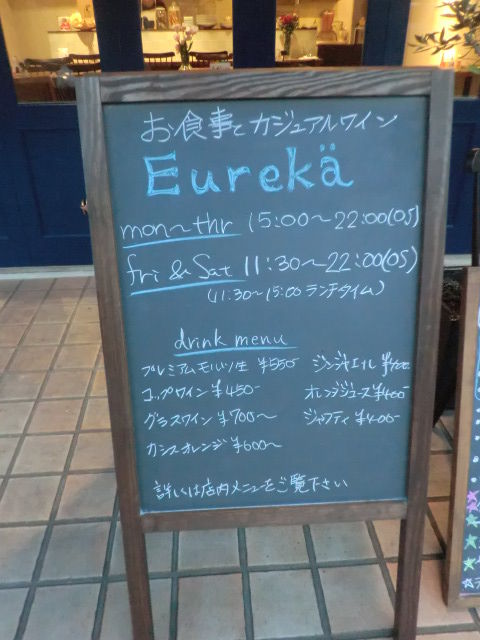 お食事とカジュアルワイン
Eurekä
mon～thr 15:00～22:00(OS)
fri & Sat 11:30～22:00(OS)
(11:30～15:00 ランチタイム)
drink menu
プレミアムモルツ生 ¥550-
コップワイン ¥450-
グラスワイン ¥700～
カシスオレンジ ¥600～
ジンジャエール
オレンジジュース ¥400-
ジャスティ ¥400-
詳しくは店内メニューをご覧下さい